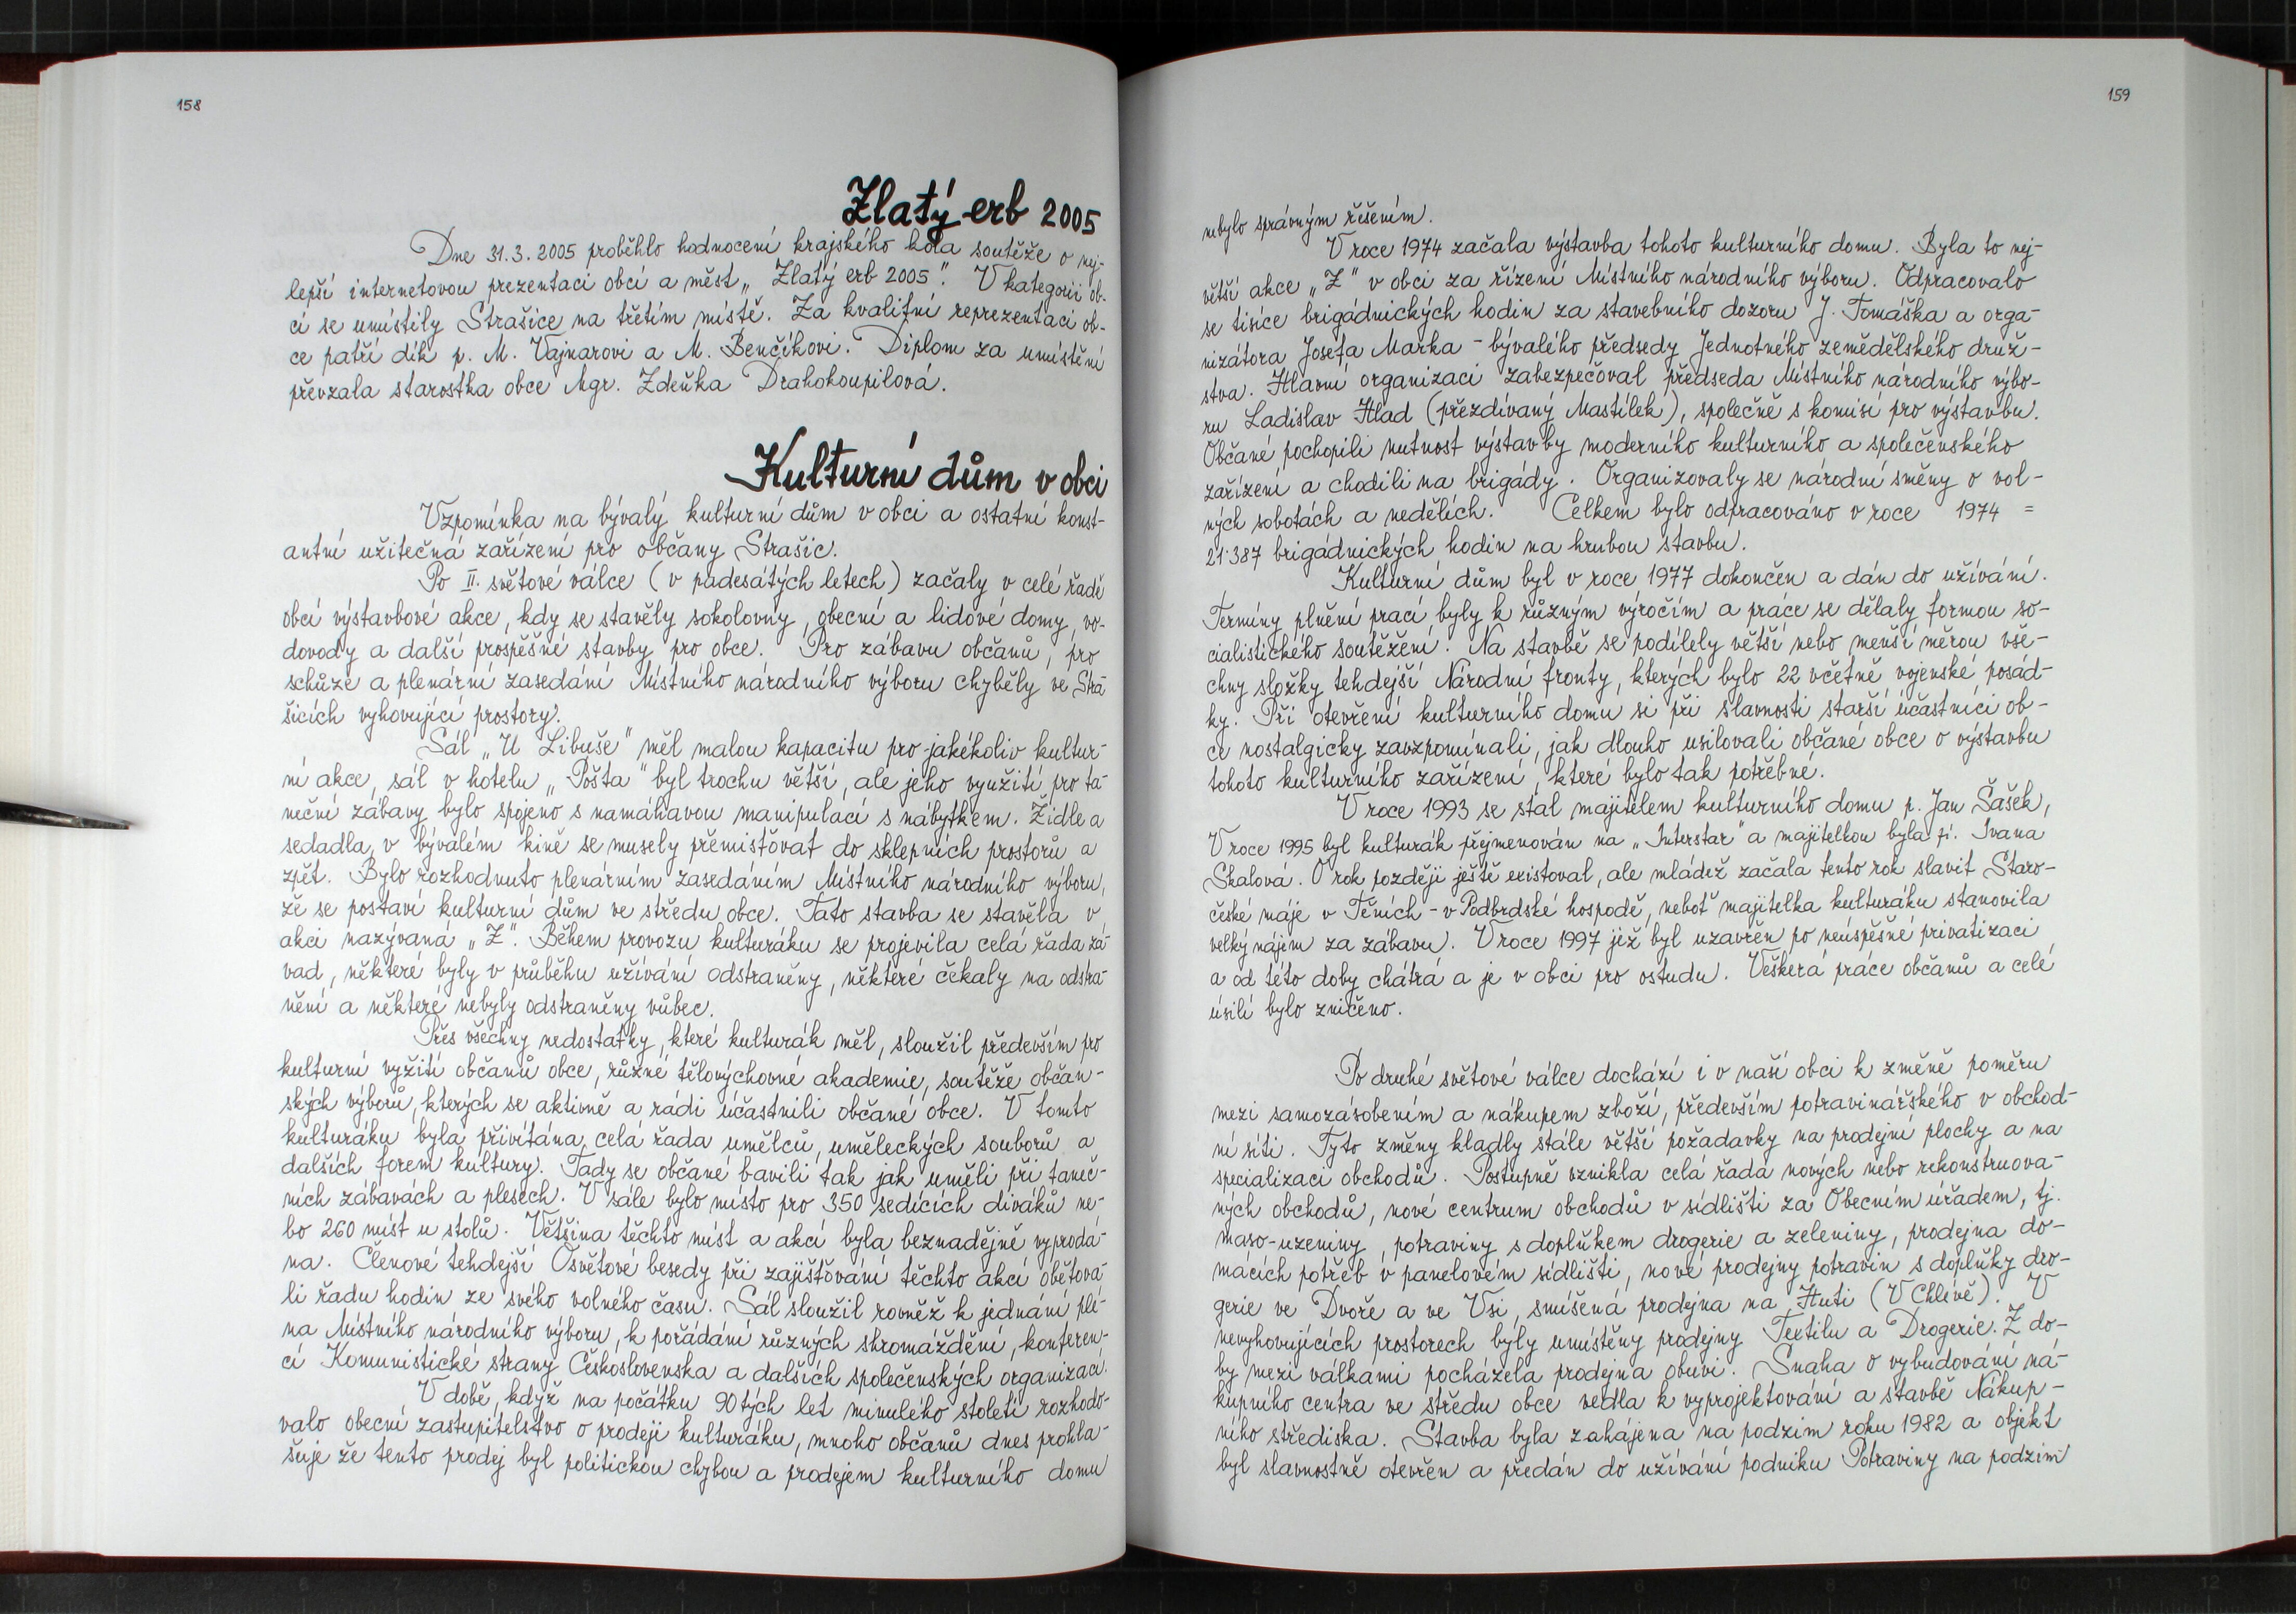 158
Zlatý erb 2005
Dne 31.3. 2005 proběhlo hodnocení krajského kola soutěže o nej-
lepší internetovou prezentaci obcí a měst „Zlatý erb 2005". V kategorii ob-
cí se umístily Strašice na třetím místě. Za kvalitní reprezentaci ob-
ce patří dík p. M. Vajnarovi a M. Benčíkovi. Diplom za umístění
převzala starostka obce Mgr. Zdeňka Drahokoupilová.
Kulturní dům v obci
Vzpomínka na bývalý kulturní dům v obci a ostatní konst-
antní užitečná zařízení pro občany Strašic.
Po II. světové válce (v padesátých letech) začaly v celé řadě
obcí výstavbové akce, kdy se stavěly sokolovny, obecní a lidové domy, vo-
dovody a další prospěšné stavby pro obce. Pro zábavu občanů, pro
schůze a plenární zasedání Místního národního výboru chyběly ve Stra-
šicích vyhovující prostory.
Sál „U Libuše" měl malou kapacitu pro jakékoliv kultur-
ní akce, sál v hotelu „Pošta" byl trochu větší, ale jeho využití pro ta-
neční zábavy bylo spojeno s namáhavou manipulací s nábytkem. Židle a
sedadla v bývalém kině se musely přemisťovat do sklepních prostorů a
zpět. Bylo rozhodnuto plenárním zasedáním Místního národního výboru,
že se postaví kulturní dům ve středu obce. Tato stavba se stavěla v
akci nazývaná „Z". Během provozu kulturáku se projevila celá řada zá-
vad, některé byly v průběhu užívání odstraněny, některé čekaly na odstra-
nění a některé nebyly odstraněny vůbec.
Přes všechny nedostatky, které kulturák měl, sloužil především pro
kulturní vyžití občanů obce, různé tělovýchovné akademie, soutěže občan-
ských výborů, kterých se aktivně a rádi účastnili občané obce. V tomto
kulturáku byla přivítána celá řada umělců, uměleckých souborů a
dalších forem kultury. Tady se občané bavili tak jak uměli při taneč-
ních zábavách a plesech. V sále bylo místo pro 350 sedících diváků ne-
bo 260 míst u stolů. Většina těchto míst a akcí byla beznadějně vyprodá-
na. Členové tehdejší Osvětové besedy při zajišťování těchto akcí obětova-
li řadu hodin ze svého volného času. Sál sloužil rovněž k jednání plé-
na Místního národního výboru, k pořádání různých shromáždění, konferen-
cí Komunistické strany Československa a dalších společenských organizací.
V době, když na počátku 90tých let minulého století rozhodo-
valo obecní zastupitelstvo o prodeji kulturáku, mnoho občanů dnes prohla-
šuje že tento prodej byl politickou chybou a prodejem kulturního domu
159
nebylo správným řešením.
V roce 1974 začala výstavba tohoto kulturního domu. Byla to nej-
větší akce „Z" v obci za řízení Místního národního výboru. Odpracovalo
se tisíce brigádnických hodin za stavebního dozoru J. Tomáška a orga-
nizátora Josefa Marka - bývalého předsedy Jednotného zemědělského druž-
stva. Hlavní organizaci zabezpečoval předseda Místního národního výbo-
ru Ladislav Hlad (přezdívaný Mastílek), společně s komisí pro výstavbu.
Občané pochopili nutnost výstavby moderního kulturního a společenského
zařízení a chodili na brigády. Organizovaly se národní směny o vol-
ných sobotách a nedělích. Celkem bylo odpracováno v roce 1974 =
21.387 brigádnických hodin na hrubou stavbu.
Kulturní dům byl v roce 1977 dokončen a dán do užívání.
Termíny plnění prací byly k různým výročím a práce se dělaly formou so-
cialistického soutěžení. Na stavbě se podílely větší nebo menší měrou vše-
chny složky tehdejší Národní fronty, kterých bylo 22 včetně vojenské posád-
ky. Při otevření kulturního domu si při slavnosti starší účastníci ob-
ce nostalgicky zavzpomínali, jak dlouho usilovali občané obce o výstavbu
tohoto kulturního zařízení, které bylo tak potřebné.
V roce 1993 se stal majitelem kulturního domu p. Jan Šašek,
V roce 1995 byl kulturák přejmenován na „Interstar" a majitelkou byla pí. Ivana
Skalová. O rok později ještě existoval, ale mládež začala tento rok slavit Staro-
české máje v Těních - v Podbrdské hospodě, neboť majitelka kulturáku stanovila
velký nájem za zábavu. V roce 1997 již byl uzavřen po neúspěšné privatizaci
a od této doby chátrá a je v obci pro ostudu. Veškerá práce občanů a celé
úsilí bylo zničeno.
Po druhé světové válce dochází i v naší obci k změně poměru
mezi samozásobením a nákupem zboží, především potravinářského v obchod-
ní síti. Tyto změny kladly stále větší požadavky na prodejní plochy a na
specializaci obchodů. Postupně vznikla celá řada nových nebo rekonstruova-
ných obchodů, nové centrum obchodů v sídlišti za Obecním úřadem, tj.
maso-uzeniny, potraviny s doplňkem drogerie a zeleniny, prodejna do-
mácích potřeb v panelovém sídlišti, nové prodejny potravin s doplňky dro-
gerie ve Dvoře a ve Vsi, smíšená prodejna na Huti (V Chlívě). V
nevyhovujících prostorech byly umístěny prodejny Textilu a Drogerie. Z do-
by mezi válkami pocházela prodejna obuvi. Snaha o vybudování ná-
kupního centra ve středu obce vedla k vyprojektování a stavbě Nákup-
ního střediska. Stavba byla zahájena na podzim roku 1982 a objekt
byl slavnostně otevřen a předán do užívání podniku Potraviny na podzim